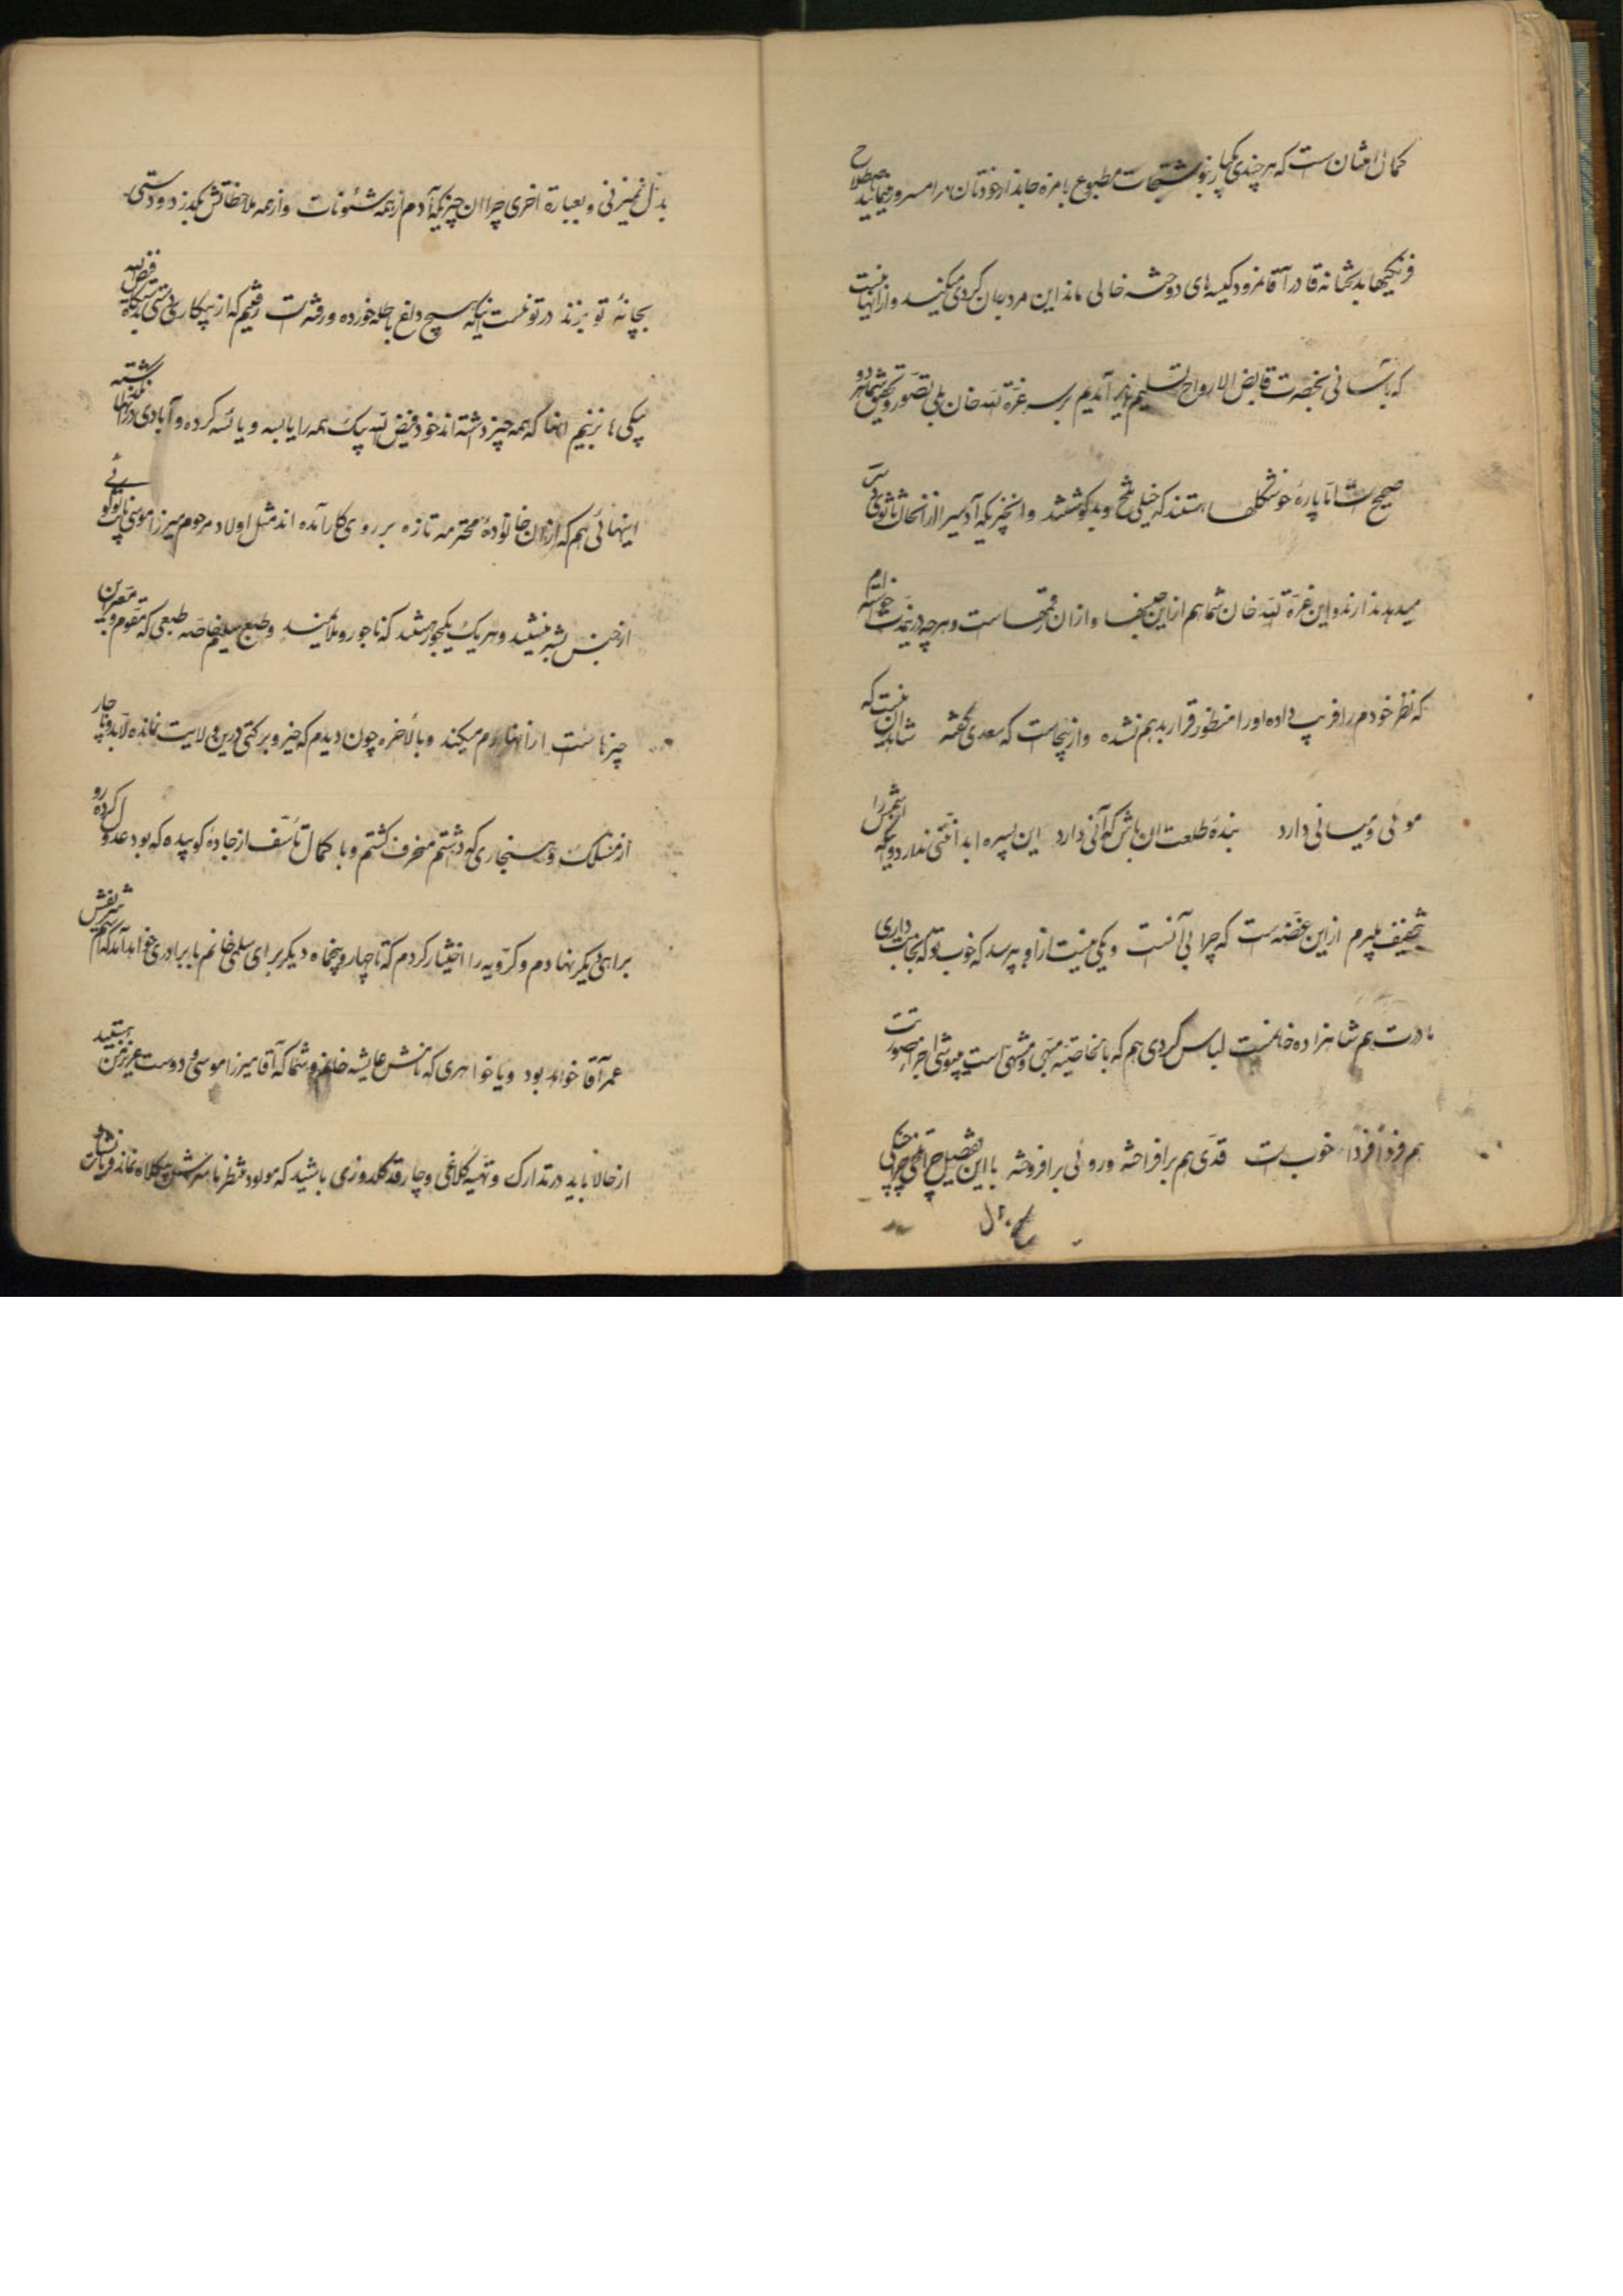 کمال امتنان است که هر چندی یکبار بنوشتجات مطبوع بامزه جاذبدار خودتان مرا مسرور مینمائید باصطلاح
فرنگیها بدبختانه قادر آقا مزود کیسه‌های دوخته خالی ماند این مرد جان کردی میکنید و از آنها نیست
که بآسانی بحضرت قابض الارواح تسلیم نماید آمدیم بر سر عزة الله خان بلی تصور و تحقیق شما هر دو
صحیح است اما پاره خوشگلها هستند که خیلی شخ و بدگوشتند و آنچیزیکه آدمیرا از انسان
میدهد ندارند و این عزة الله خان شما هم از این صنفها و از آن قسمتهاست و هر چه در مدت خواسته‌ام
که نظر خودم را فریب داده او را منظور قرار بدهم نشده و از اینجاست که سعدی گفته شاهد آن نیست که
موئی و میانی دارد بنده طلعت آن باش که آنی دارد این پسره ابدا آنی ندارد
ضعیف پدرم از این غصه است که چرا بی آنست و یکی نیست از او بپرسد که خوب تو که نجابت داری
مادرت هم شاهزاده خانمست لباس کردی هم که بالخاصیه مبهی و مشهی است میپوشی اجزاء صورتت
هم فردا فردا خوب است قدی هم برافراخته و روئی برافروخته با این تفصیل چرا چنگی
بدل نمیزنی و بعبارة اخری چرا آن چیزیکه آدم از همه شئونات و از همه ملاحظاتش بگذرد و دستی
بچانه تو بزند در تو نیست اینکه هیچ داغ باطله خورده و رفته است رفتیم که از بیکاری دستی بدنبک فیض الله
بیکی ها بزنیم آنها که همه چیز داشته‌اند خود فیض الله بیک همه را یابسه و یائسه کرده و آبادی در آنها نگذاشته
اینهائی هم که از آن خانواده محترمه تازه بر روی کار آمده‌اند مثل اولاد مرحوم میرزا موسی
از جنس بشر نیستند و هر یک یکجور هستند که ناجور و ملایمند و طبع سلیم خاصه طبعی که مقوم و به
چیزهاست از آنها رم میکند و بالاخره چون دیدم که خیر و برکتی در این ولایت نمانده لابد و ناچار
از مسلک و هنجاری که داشتم منحرف گشتم و با کمال تأسف از جاده کوبیده که بود عدول کرده رو
براهی دیگر نهادم و کرویه را اختیار کردم که تا چهار و پنجماه دیگر برای سلمی خانم یا برادری خواهد آمد که اسم شریفش
عمر آقا خواهد بود و یا خواهری که نامش عایشه خانم و شما که آقا میرزا موسی و دوست عزیز من هستید
از حالا باید در تدارک و تهیه کلاغی و چارقد گلدوزی باشید که مولود منتظر ما سرش بیکلاه نماند